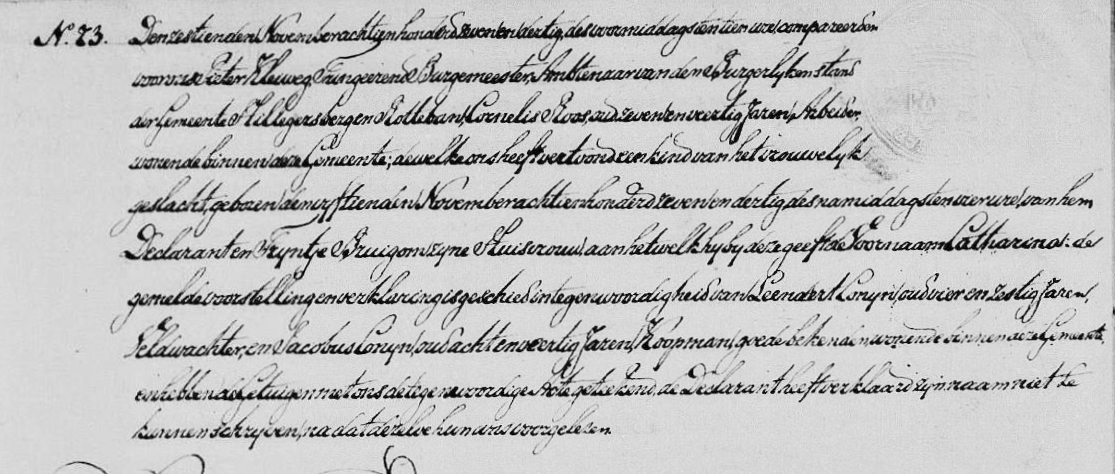 N.º 73. Den zestienden November achtienhonderd zeven en dertig, des voormiddags ten tien ure, compareerde
voor ons Pieter Kleuweg, Fungeerend Burgemeester, Ambtenaar van den Burgerlyken stand
der Gemeente Hillegersberg en Rotteban, Cornelis Roos, oud zeven en veertig Jaren, Arbeider,
wonende binnen deze Gemeente; dewelke ons heeft vertoond een kind van het vrouwelyk
geslacht, geboren den vyftienden November achtienhonderd zeven en dertig, des namiddags ten vier ure, van hem
Declarant en Tryntje Bruigom, zyne Huisvrouw, aan hetwelk hy by deze geeft de Voornaam Catharina: de
gemelde voorstelling en verklaring is geschied in tegenwoordigheid van Leendert Conyn, oud vier en zestig Jaren,
Veldwachter, en Jacobus Conyn, oud acht en veertig Jaren, Koopman, goede bekenden, wonende binnen deze Gemeente,
en hebben de Getuigen met ons de tegenwoordige Acte geteekend, de Declarant heeft verklaard zyn naam niet te
kunnen schryven, na dat dezelve hun was voorgelezen.